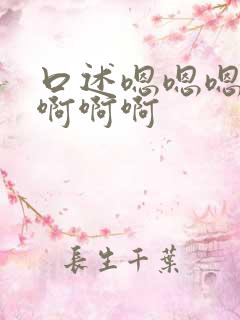 口述嗯嗯嗯
啊啊啊
長生千葉